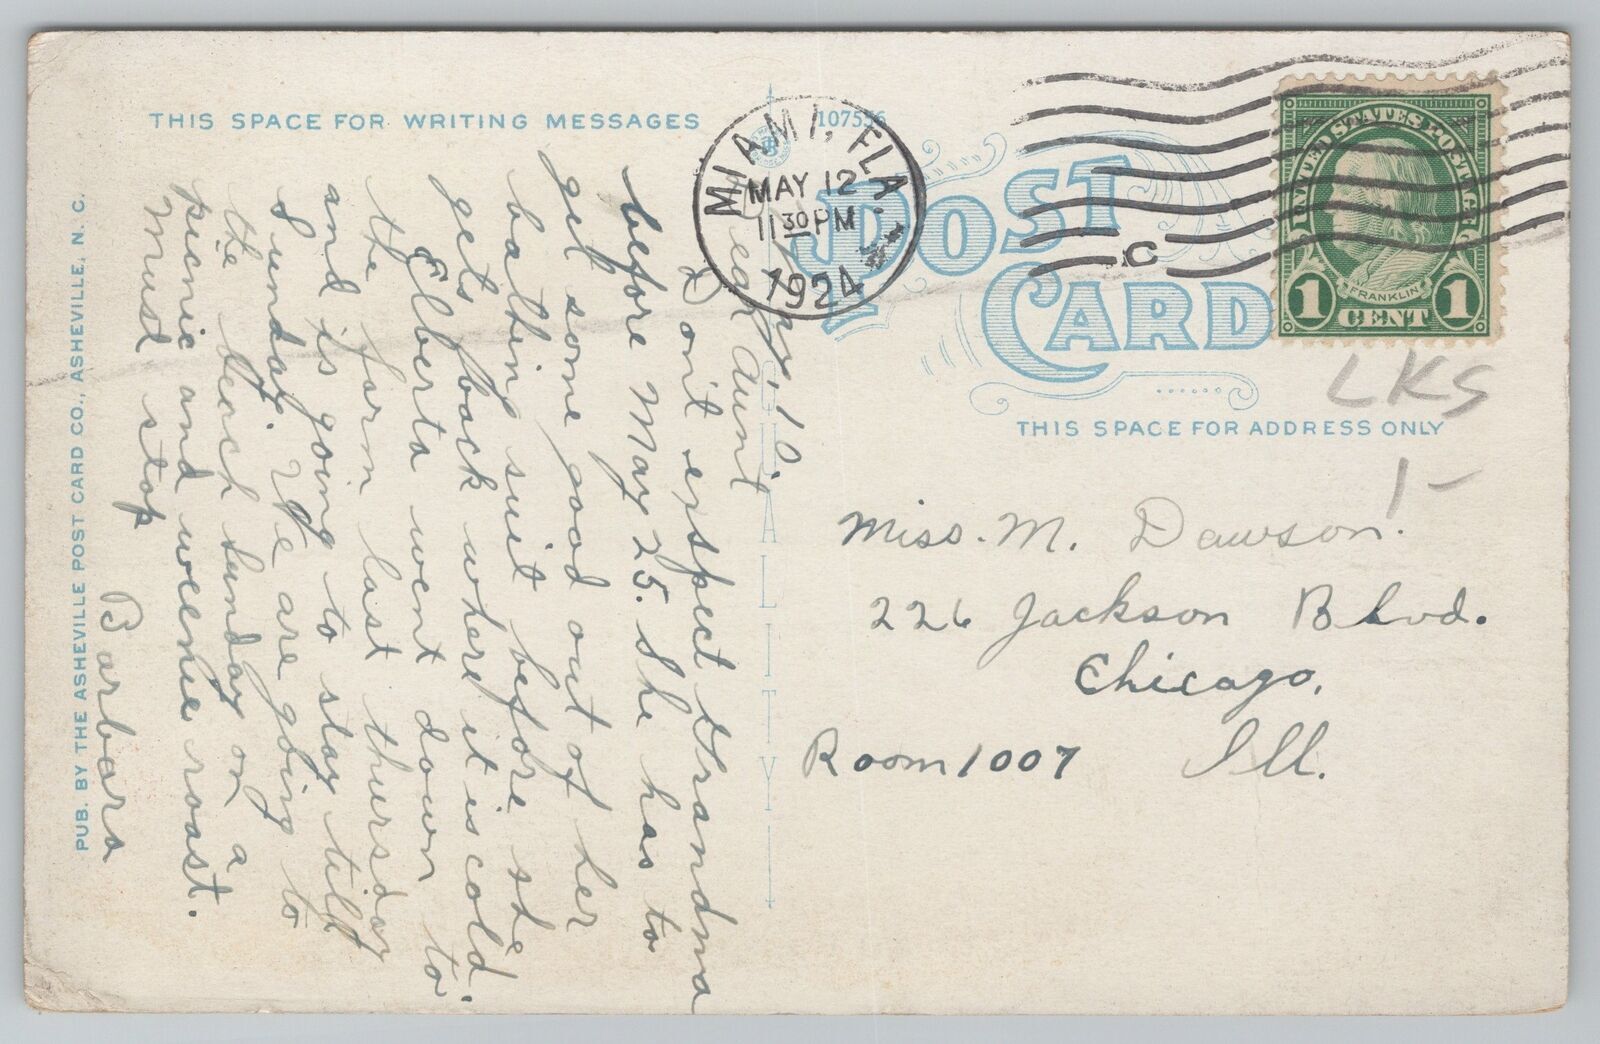 THIS SPACE FOR WRITING MESSAGES
107556
MIAMI, FLA.
MAY 12
11 30 PM
1924
C
POST
CARD
UNITED STATES POSTAGE
FRANKLIN
1 CENT 1
LKS
1-
THIS SPACE FOR ADDRESS ONLY
May, 10,
Dear Aunt
Don't exspect Grandma
before May 25. She has to
get some good out of her
bathing suit before she
gets back where it is cold.
Elberta went down to
the farm last thursday
and is going to stay till
Sunday. We are going to
the beach Sunday on a
picnic and weenie roast.
Must stop
Barbara
Miss. M. Dawson.
226 Jackson Blvd.
Chicago,
Room 1007 Ill.
PUB. BY THE ASHEVILLE POST CARD CO., ASHEVILLE, N. C.
QUALITY